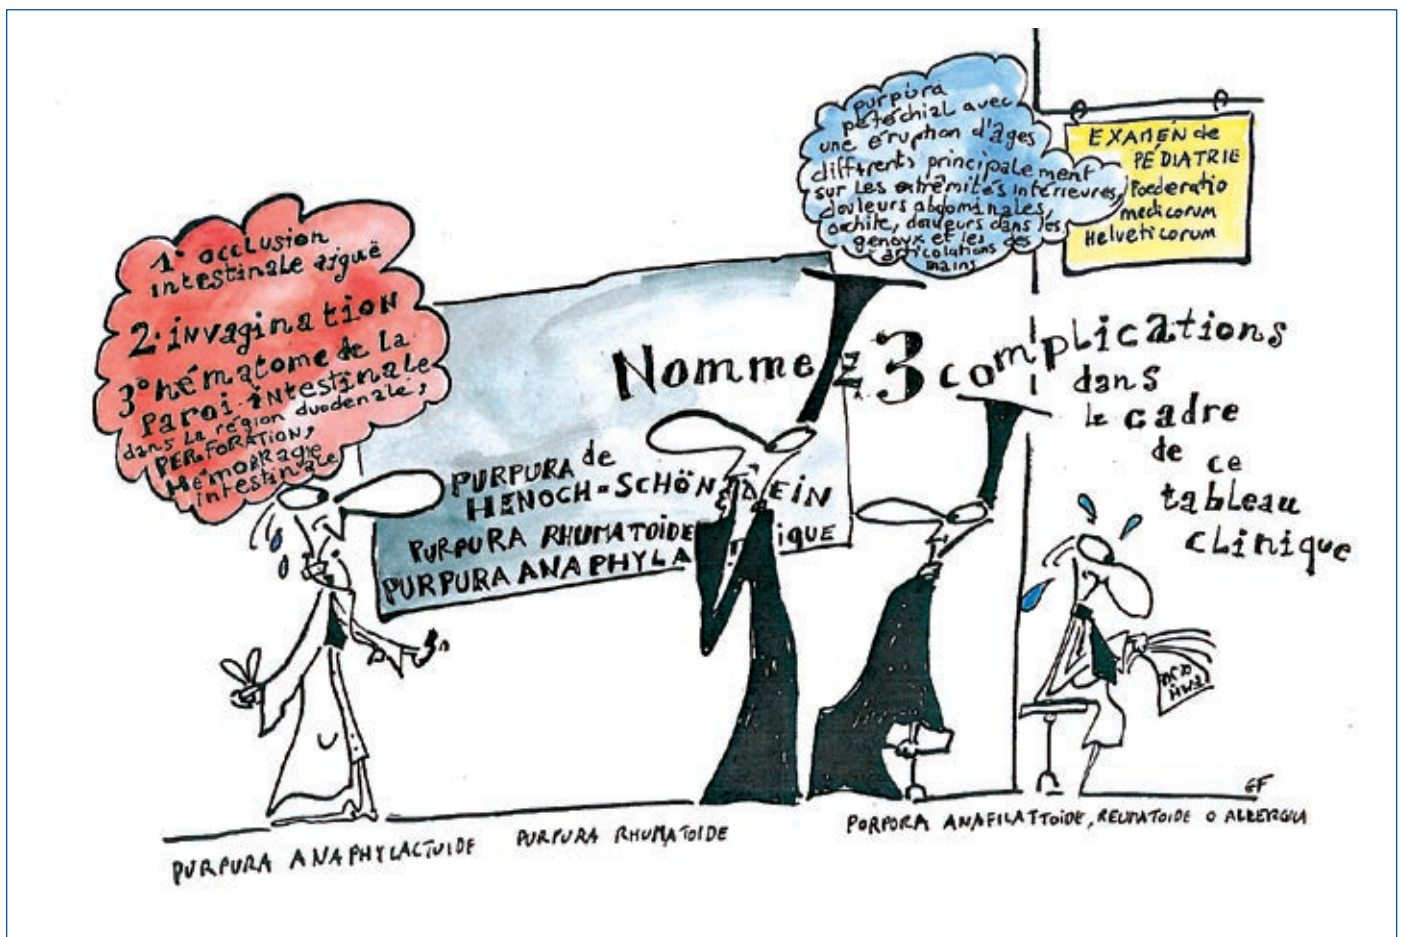 1° occlusion
intestinale aiguë
2. invagination
3° hématome de la
paroi intestinale
dans la région duodenale,
PERFORATION,
Hémorragie
intestinale
purpura
pétéchial avec
une éruption d'âges
différents principalement
sur les extrêmités inférieures,
douleurs abdominales,
orchite, douleurs dans les
genoux et les des
articulations
mains
EXAMEN de
PÉDIATRIE
Foederatio
medicorum
Helveticorum
Nommez 3 complications
dans
le cadre
de ce
tableau
clinique
PURPURA de
HENOCH=SCHÖN EIN
PURPURA RHUMATOÏDE
PURPURA ANAPHYLA ique
GF
PURPURA ANAPHYLACTUIDE
PURPURA RHUMATOIDE
PORPORA ANAFILATTOIDE, REUMATOIDE O ALLERGICA